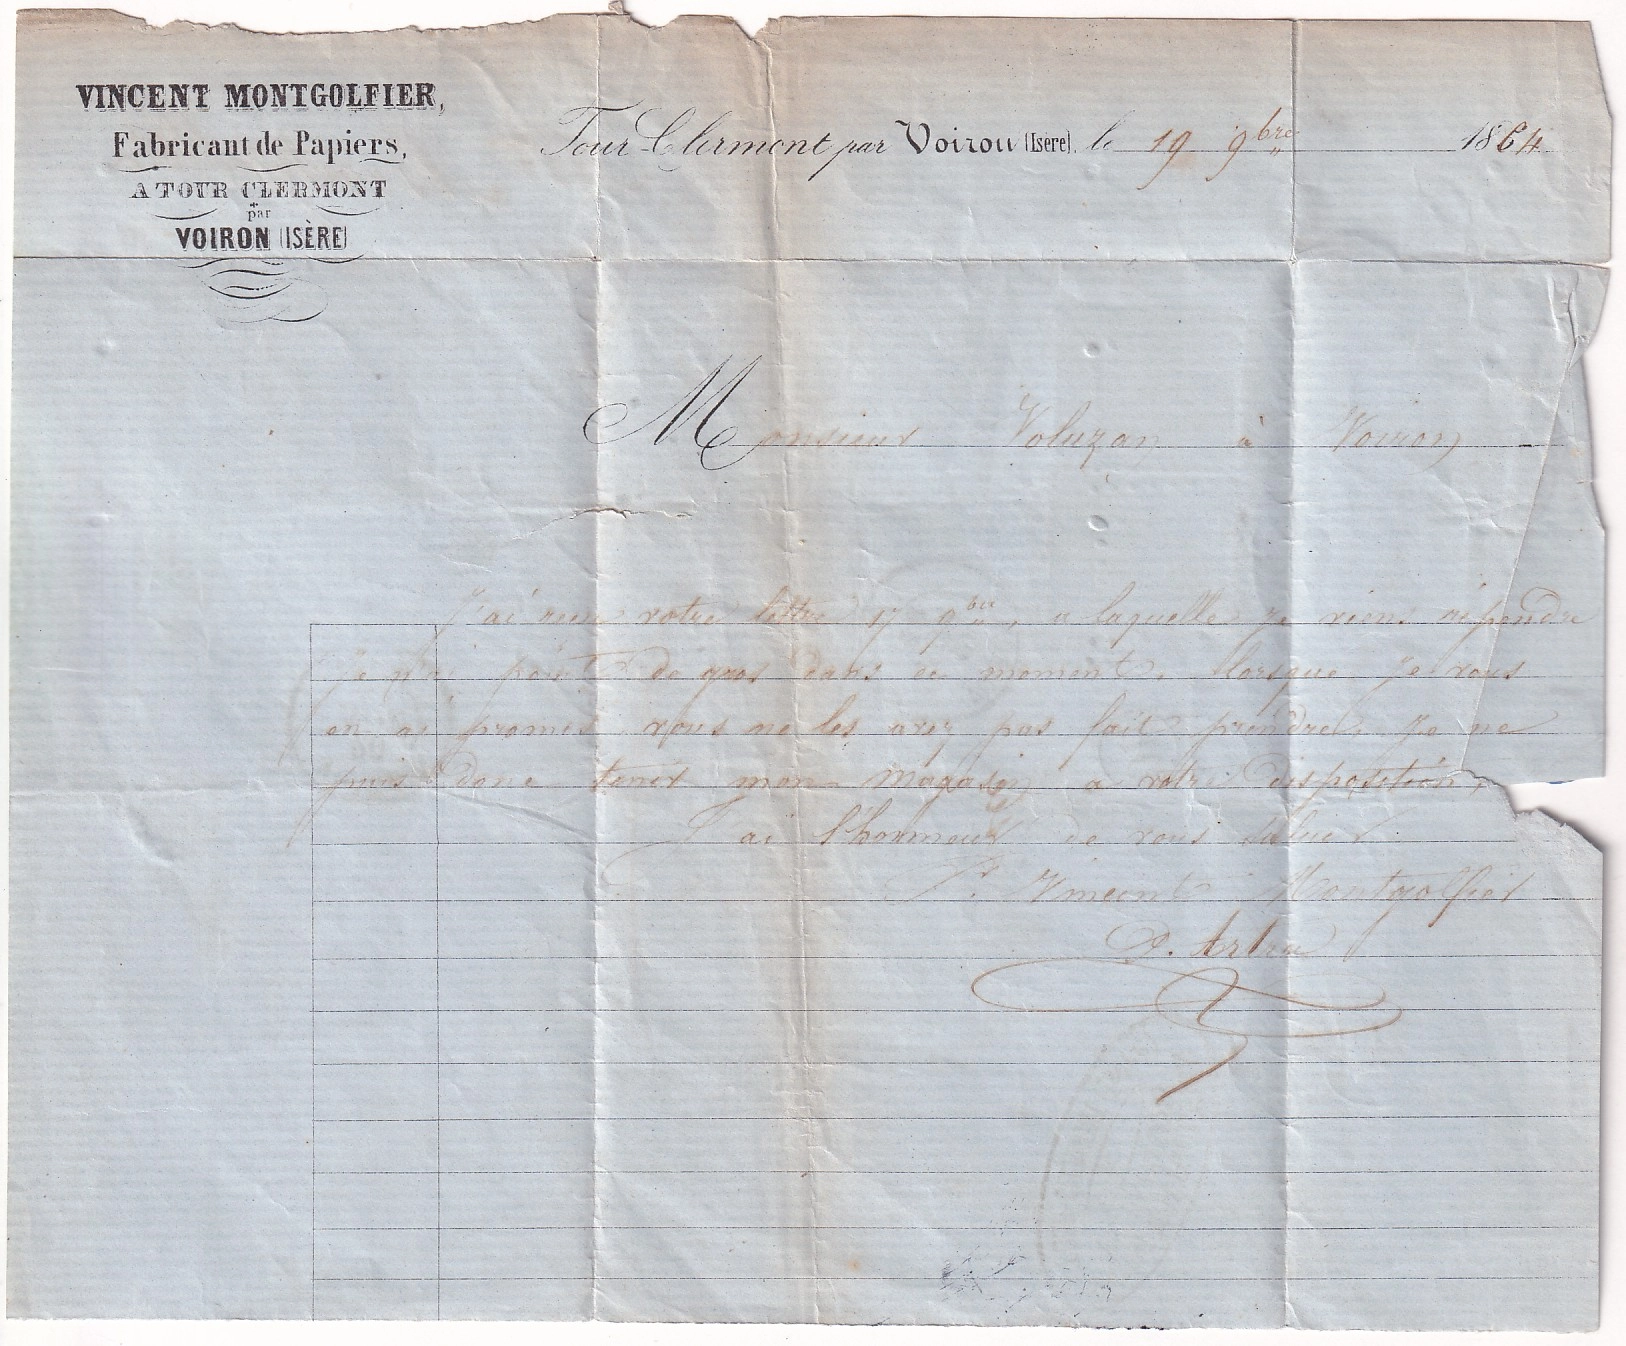 VINCENT MONTGOLFIER,
Fabricant de Papiers,
A TOUR CLERMONT
par
VOIRON (ISÈRE)
Tour-Clermont par Voiron (Isère), le 19 9bre 1864
Monsieur Voluzan à Voiron
J'ai reçu votre lettre 17 9bre, a laquelle je viens répondre
je n'ai point de gros dans ce moment, lorsque je vous
en ai promis vous ne les avez pas fait prendre, je ne
puis donc tenir mon magasin a votre disposition,
J'ai l'honneur de vous saluer
Pr. Vincent Montgolfier